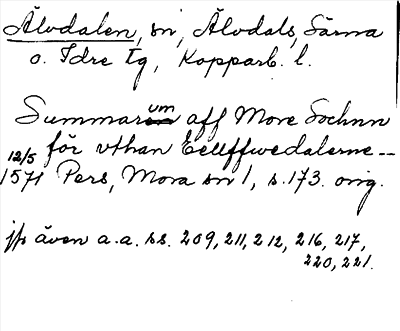 Älvdalen, sn, Älvdals, Särna
o. Idre tg, Kopparb. l.
Summarum aff More Sochnn
för vthan Eellffwedalerne --
12/5 1571 Pers, Mora sn 1, s. 173. orig.
jfr även a.a. ss. 209, 211, 212, 216, 217,
220, 221.